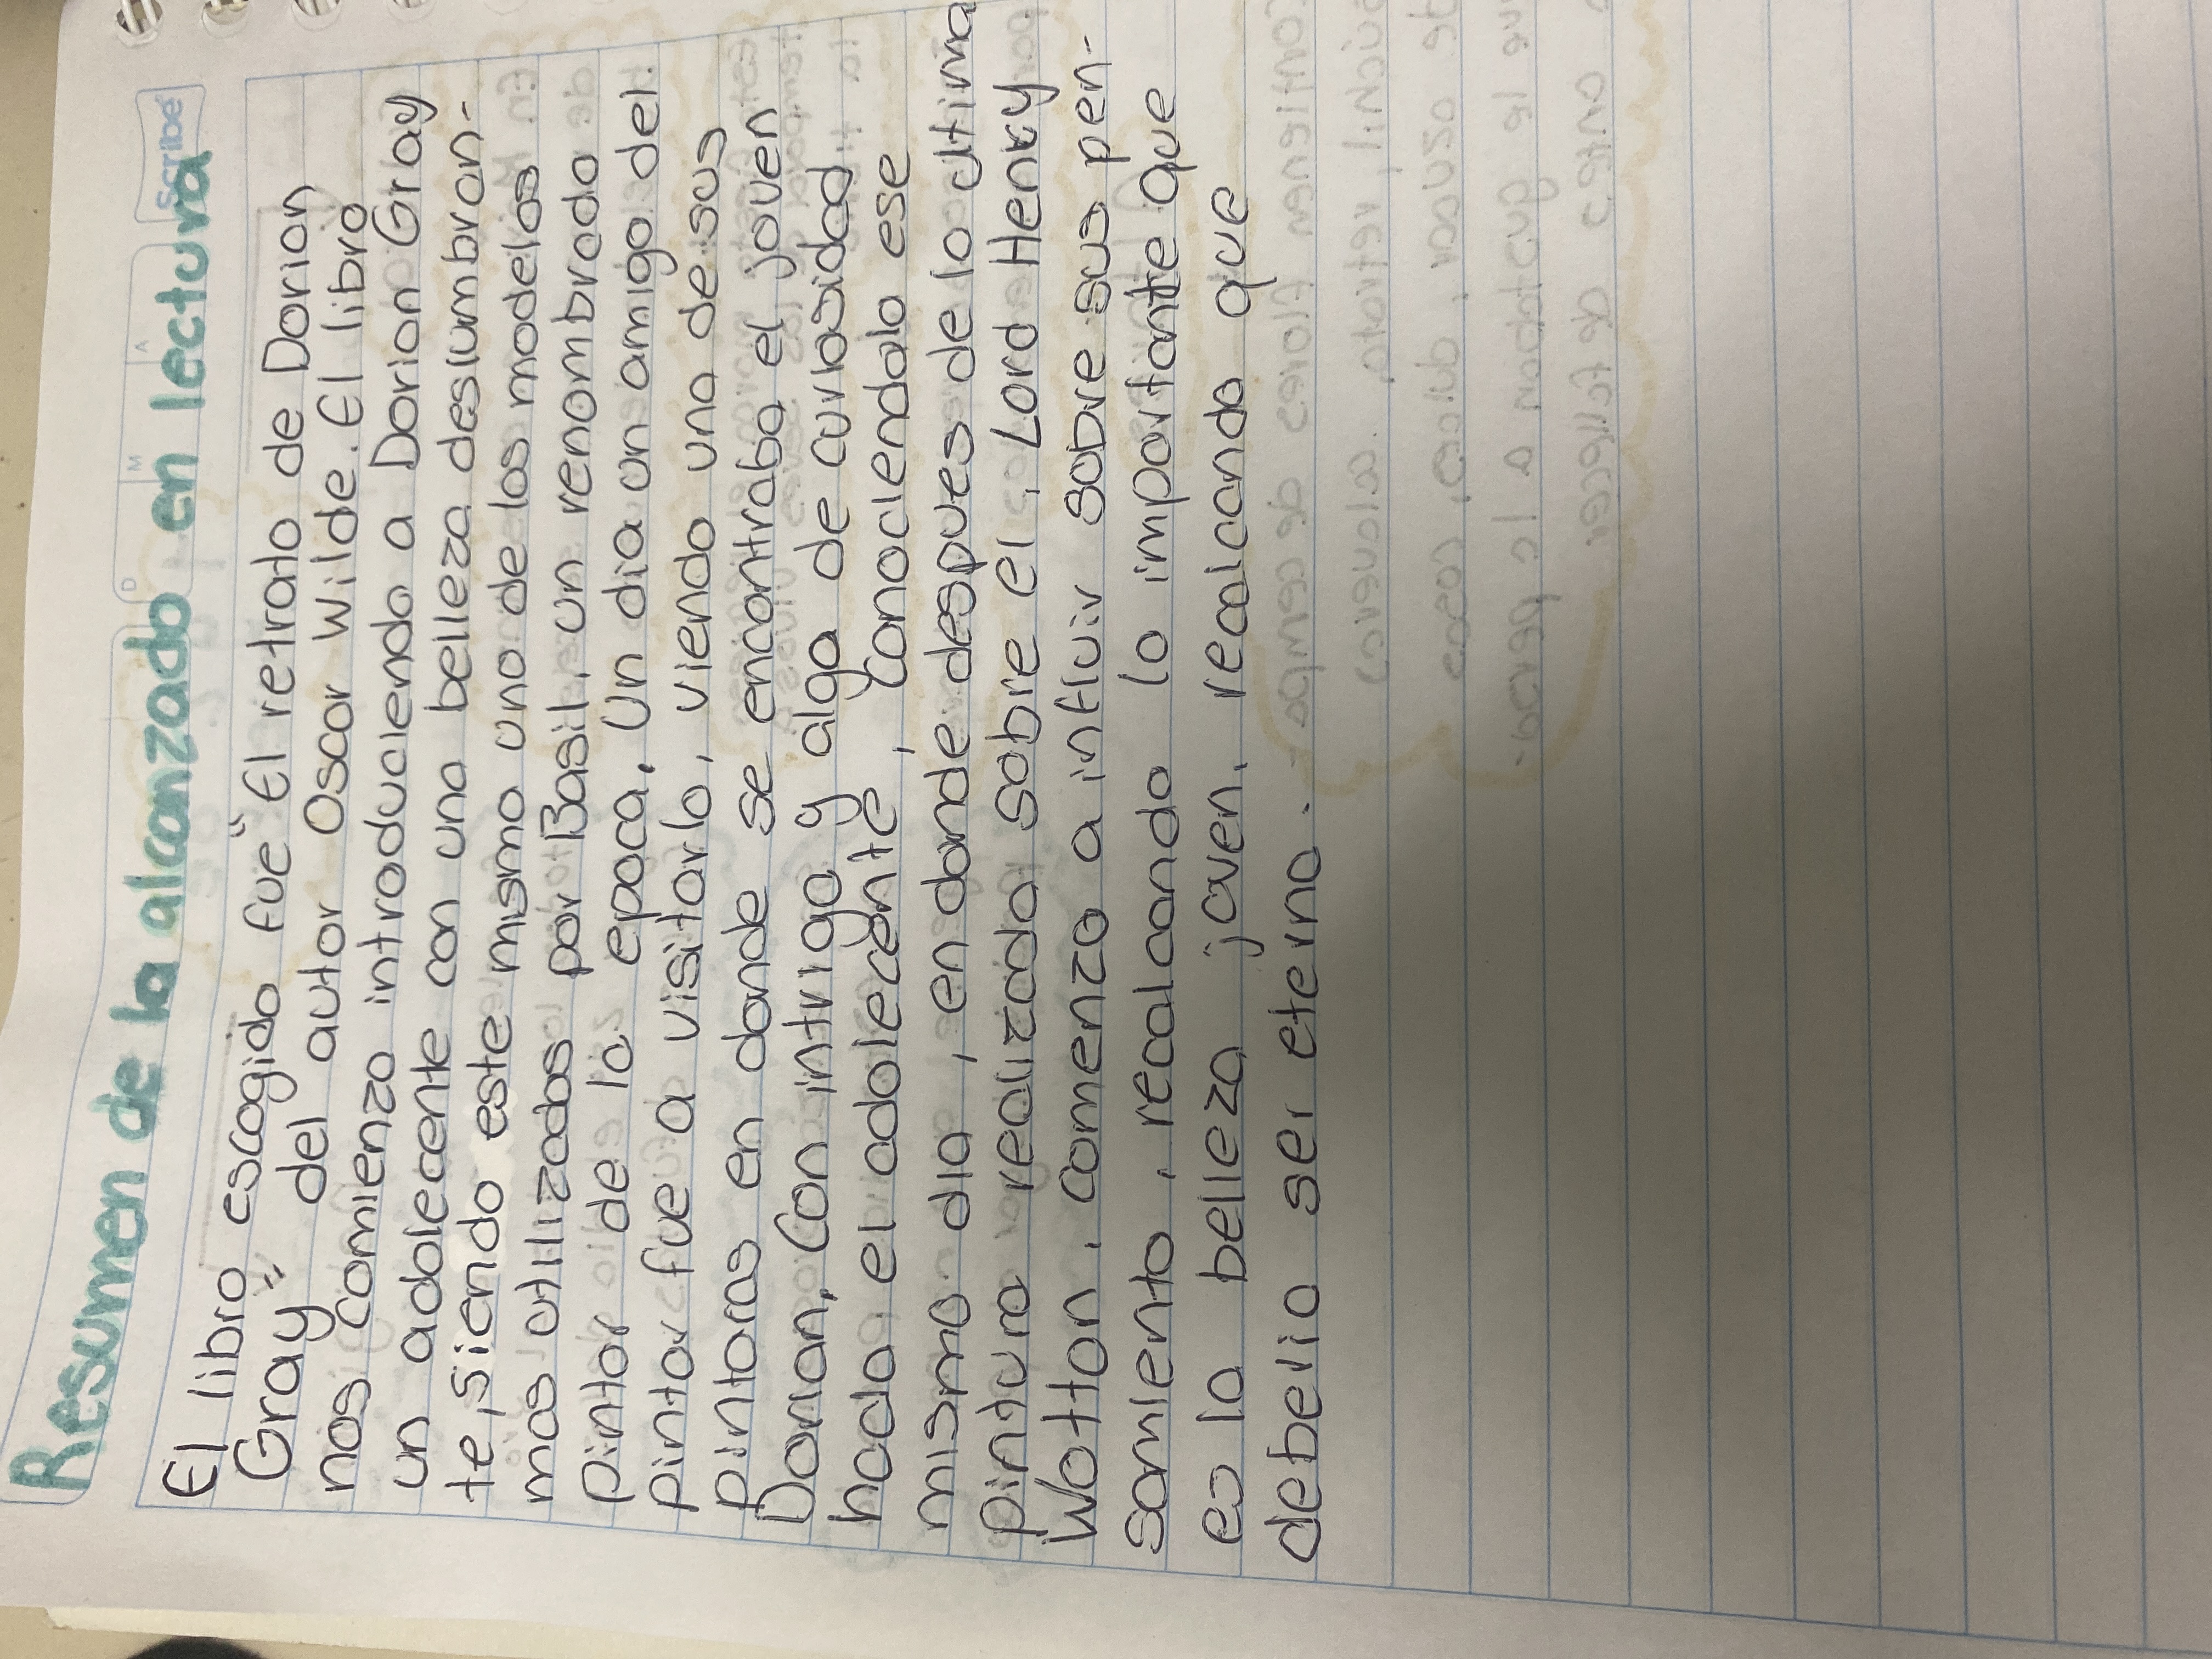 Resumen de lo alcanzado en lectura
Scribe
D M A
El libro escogido fue "El retrato de Dorian
Gray" del autor Oscar Wilde. El libro
nos comienza introduciendo a Dorian Gray
un adolecente con una belleza deslumbran-
te, siendo este mismo uno de los modelos
mas utilizados por Basil, un renombrado
pintor de la epoca. Un dia un amigo del
pintor fue a visitarlo, viendo una de sus
pintoras en donde se encontraba el joven
Dorian, Con intriga y algo de curiosidad
hacia el adolecente, conociendolo ese
mismo dia, en donde despues de la ultima
pintura realizada sobre el, Lord Henry
Wotton, comenzo a influir sobre sus pen-
samiento, recalcando lo importante que
es la belleza joven, recalcando que
deberia ser eterna.